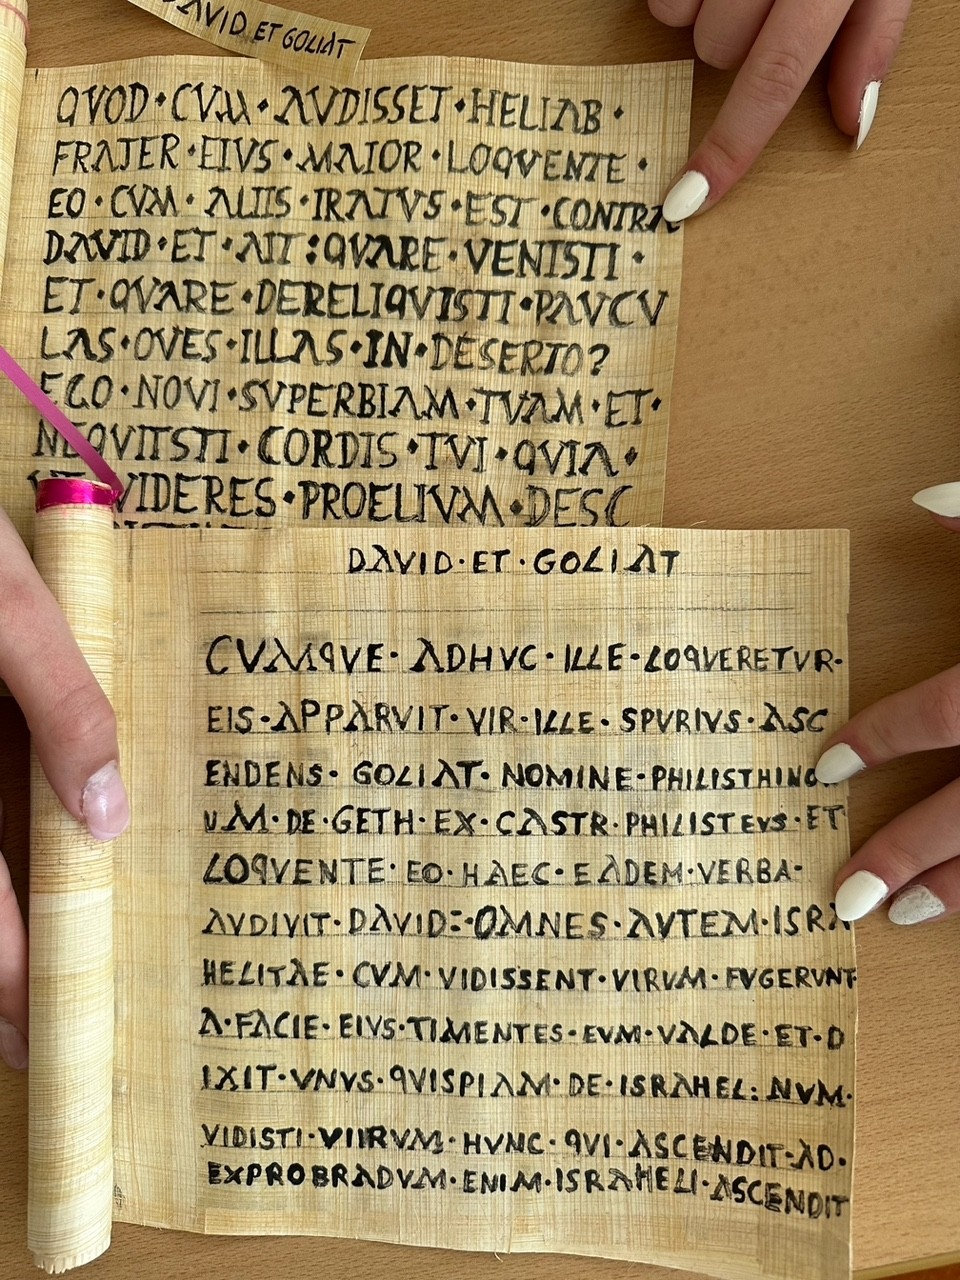 DAVID ET GOLIAT
QVOD·CVM·AVDISSET·HELIAB·
FRATER·EIVS·MAIOR·LOQVENTE·
EO·CVM·ALIIS·IRATVS·EST·CONTRA
DAVID·ET·AIT:QVARE·VENISTI·
ET·QVARE·DERELIQVISTI·PAVCV
LAS·OVES·ILLAS·IN·DESERTO?
EGO·NOVI·SVPERBIAM·TVAM·ET·
NEQVITSTI·CORDIS·TVI·QVIA·
VIDERES·PROELIVM·DESC
DAVID·ET·GOLIAT
CVMQVE·ADHVC·ILLE·LOQVERETVR·
EIS·APPARVIT·VIR·ILLE·SPVRIVS·ASC
ENDENS·GOLIAT·NOMINE·PHILISTHINO
VM·DE·GETH·EX·CASTR·PHILISTEVS·ET
LOQVENTE·EO·HAEC·EADEM·VERBA·
AVDIVIT·DAVID:·OMNES·AVTEM·ISRA
HELITAE·CVM·VIDISSENT·VIRVM·FVGERVNT
A·FACIE·EIVS·TIMENTES·EVM·VALDE·ET·D
IXIT·VNVS·QVISPIAM·DE·ISRAHEL:NVM·
VIDISTI·VIIRVM·HVNC·QVI·ASCENDIT·AD·
EXPROBRADVM·ENIM·ISRAHELI·ASCENDIT